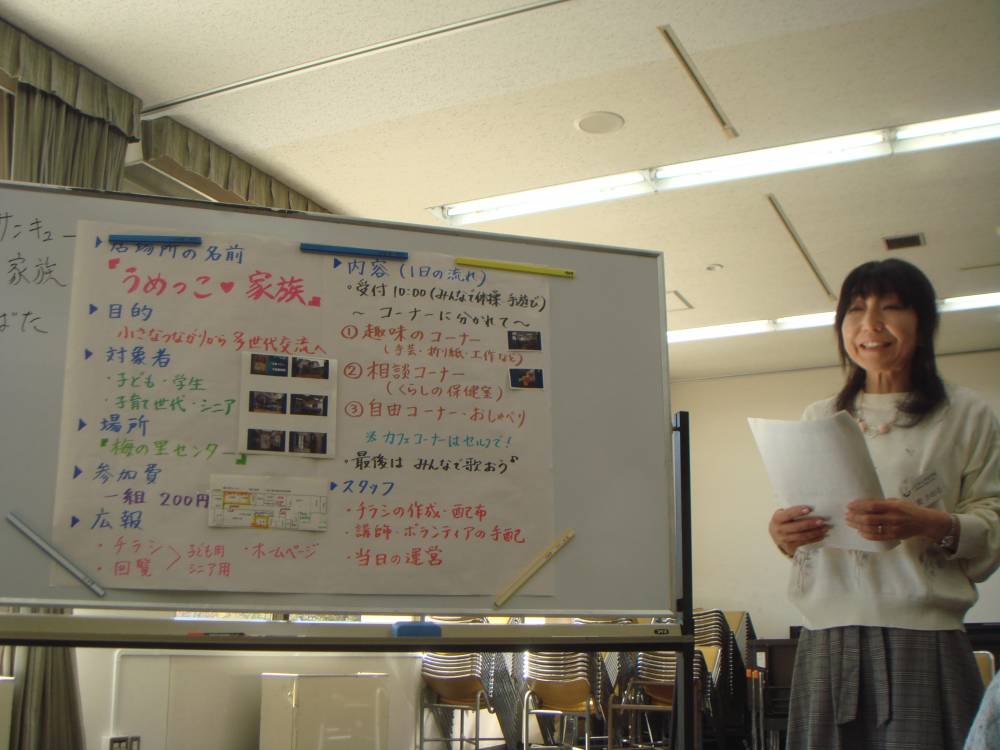 サンキュー
家族
ばた
▶居場所の名前
『うめっこ♥家族』
▶目的
小さなつながりから多世代交流へ
▶対象者
・子ども・学生
・子育て世代・シニア
▶場所
『梅の里センター』
▶参加費
一組 200円
▶広報
・チラシ
・回覧
子ども用
シニア用
・ホームページ
▶内容(1日の流れ)
・受付 10:00 (みんなで体操 手遊び)
〜 コーナーに分かれて〜
① 趣味のコーナー
(手芸・折り紙・工作など)
② 相談コーナー
(くらしの保健室)
③ 自由コーナー・おしゃべり
※ カフェコーナーはセルフで!
・最後は みんなで歌おう♪
▶スタッフ
・チラシの作成・配布
・講師・ボランティアの手配
・当日の運営